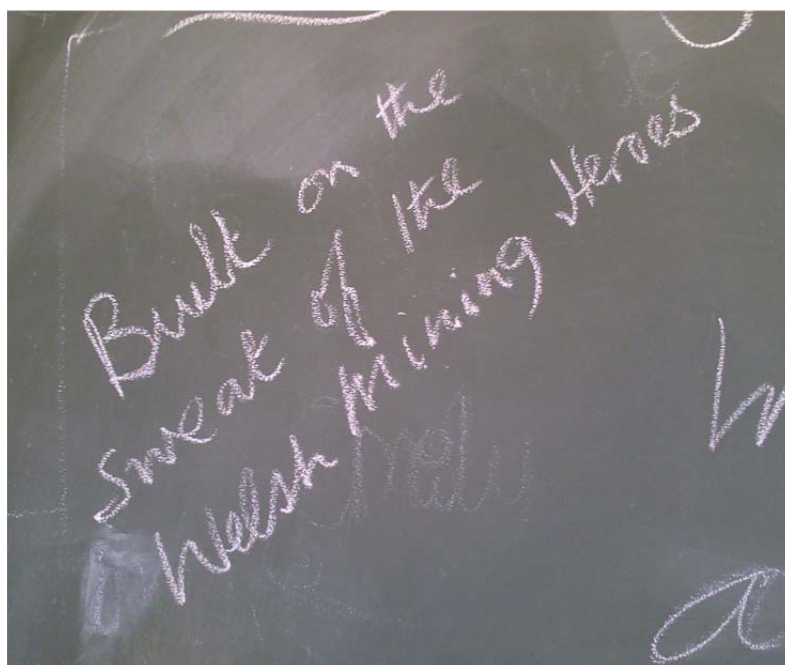 Built on the
Sweat of the
Welsh Mining Heroes